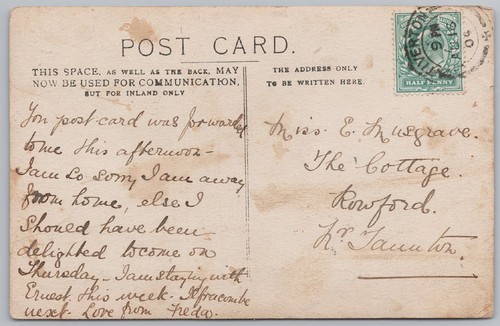 POST CARD.
THIS SPACE, AS WELL AS THE BACK, MAY
NOW BE USED FOR COMMUNICATION,
BUT FOR INLAND ONLY
THE ADDRESS ONLY
TO BE WRITTEN HERE.
HALF PENNY
You post-card was forwarded
to me this afternoon -
I am so sorry, I am away
from home, else I
should have been
delighted to come on
Thursday - I am staying with
Ernest this week - Ilfracombe
next - Love from Freda.
Miss. E. Musgrave.
The Cottage.
Rowford.
Nr. Taunton.